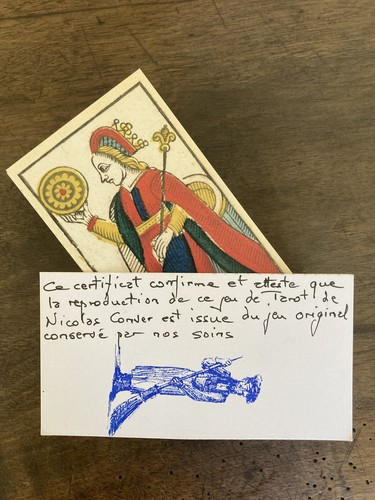 Ce certificat confirme et atteste que
la reproduction de ce jeu de Tarot de
Nicolas Conver est issue du jeu original
conservé par nos soins